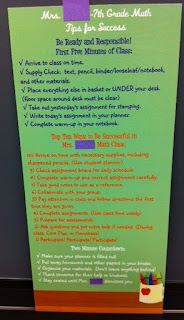 Mrs. -7th Grade Math
Tips for Success
Be Ready and Responsible!
First Five Minutes of Class:
✓ Arrive to class on time.
✓ Supply Check: text, pencil, binder/looseleaf/notebook,
and other materials.
✓ Place everything else in basket or UNDER your desk.
(Floor space around desk must be clear.)
✓ Take out yesterday's assignment for stamping.
✓ Write today's assignment in your planner.
✓ Complete warm-up in your notebook.
Top Ten Ways to Be Successful in
Mrs. Math Class:
10) Arrive on time with necessary supplies, including
sharpened pencils. (Use student planner!)
9) Check assignment board for daily schedule.
8) Complete warm-up and correct assignment carefully.
7) Take good notes to use as a reference.
6) Collaborate with your group.
5) Pay attention in class and follow directions the first
time they are given.
4) Complete assignments. (Use class time wisely)
3) Prepare for assessments.
2) Ask questions and get extra help if needed. (During
class, Core Plus, or Homebase)
1) Participate! Participate! Participate!
Two Minute Countdown:
✓ Make sure your planner is filled out.
✓ Put away homework and other papers in your binder.
✓ Organize your materials. (Don't leave anything behind)
✓ Thank someone for their help or kindness.
✓ Stay seated until Mrs. dismisses you.